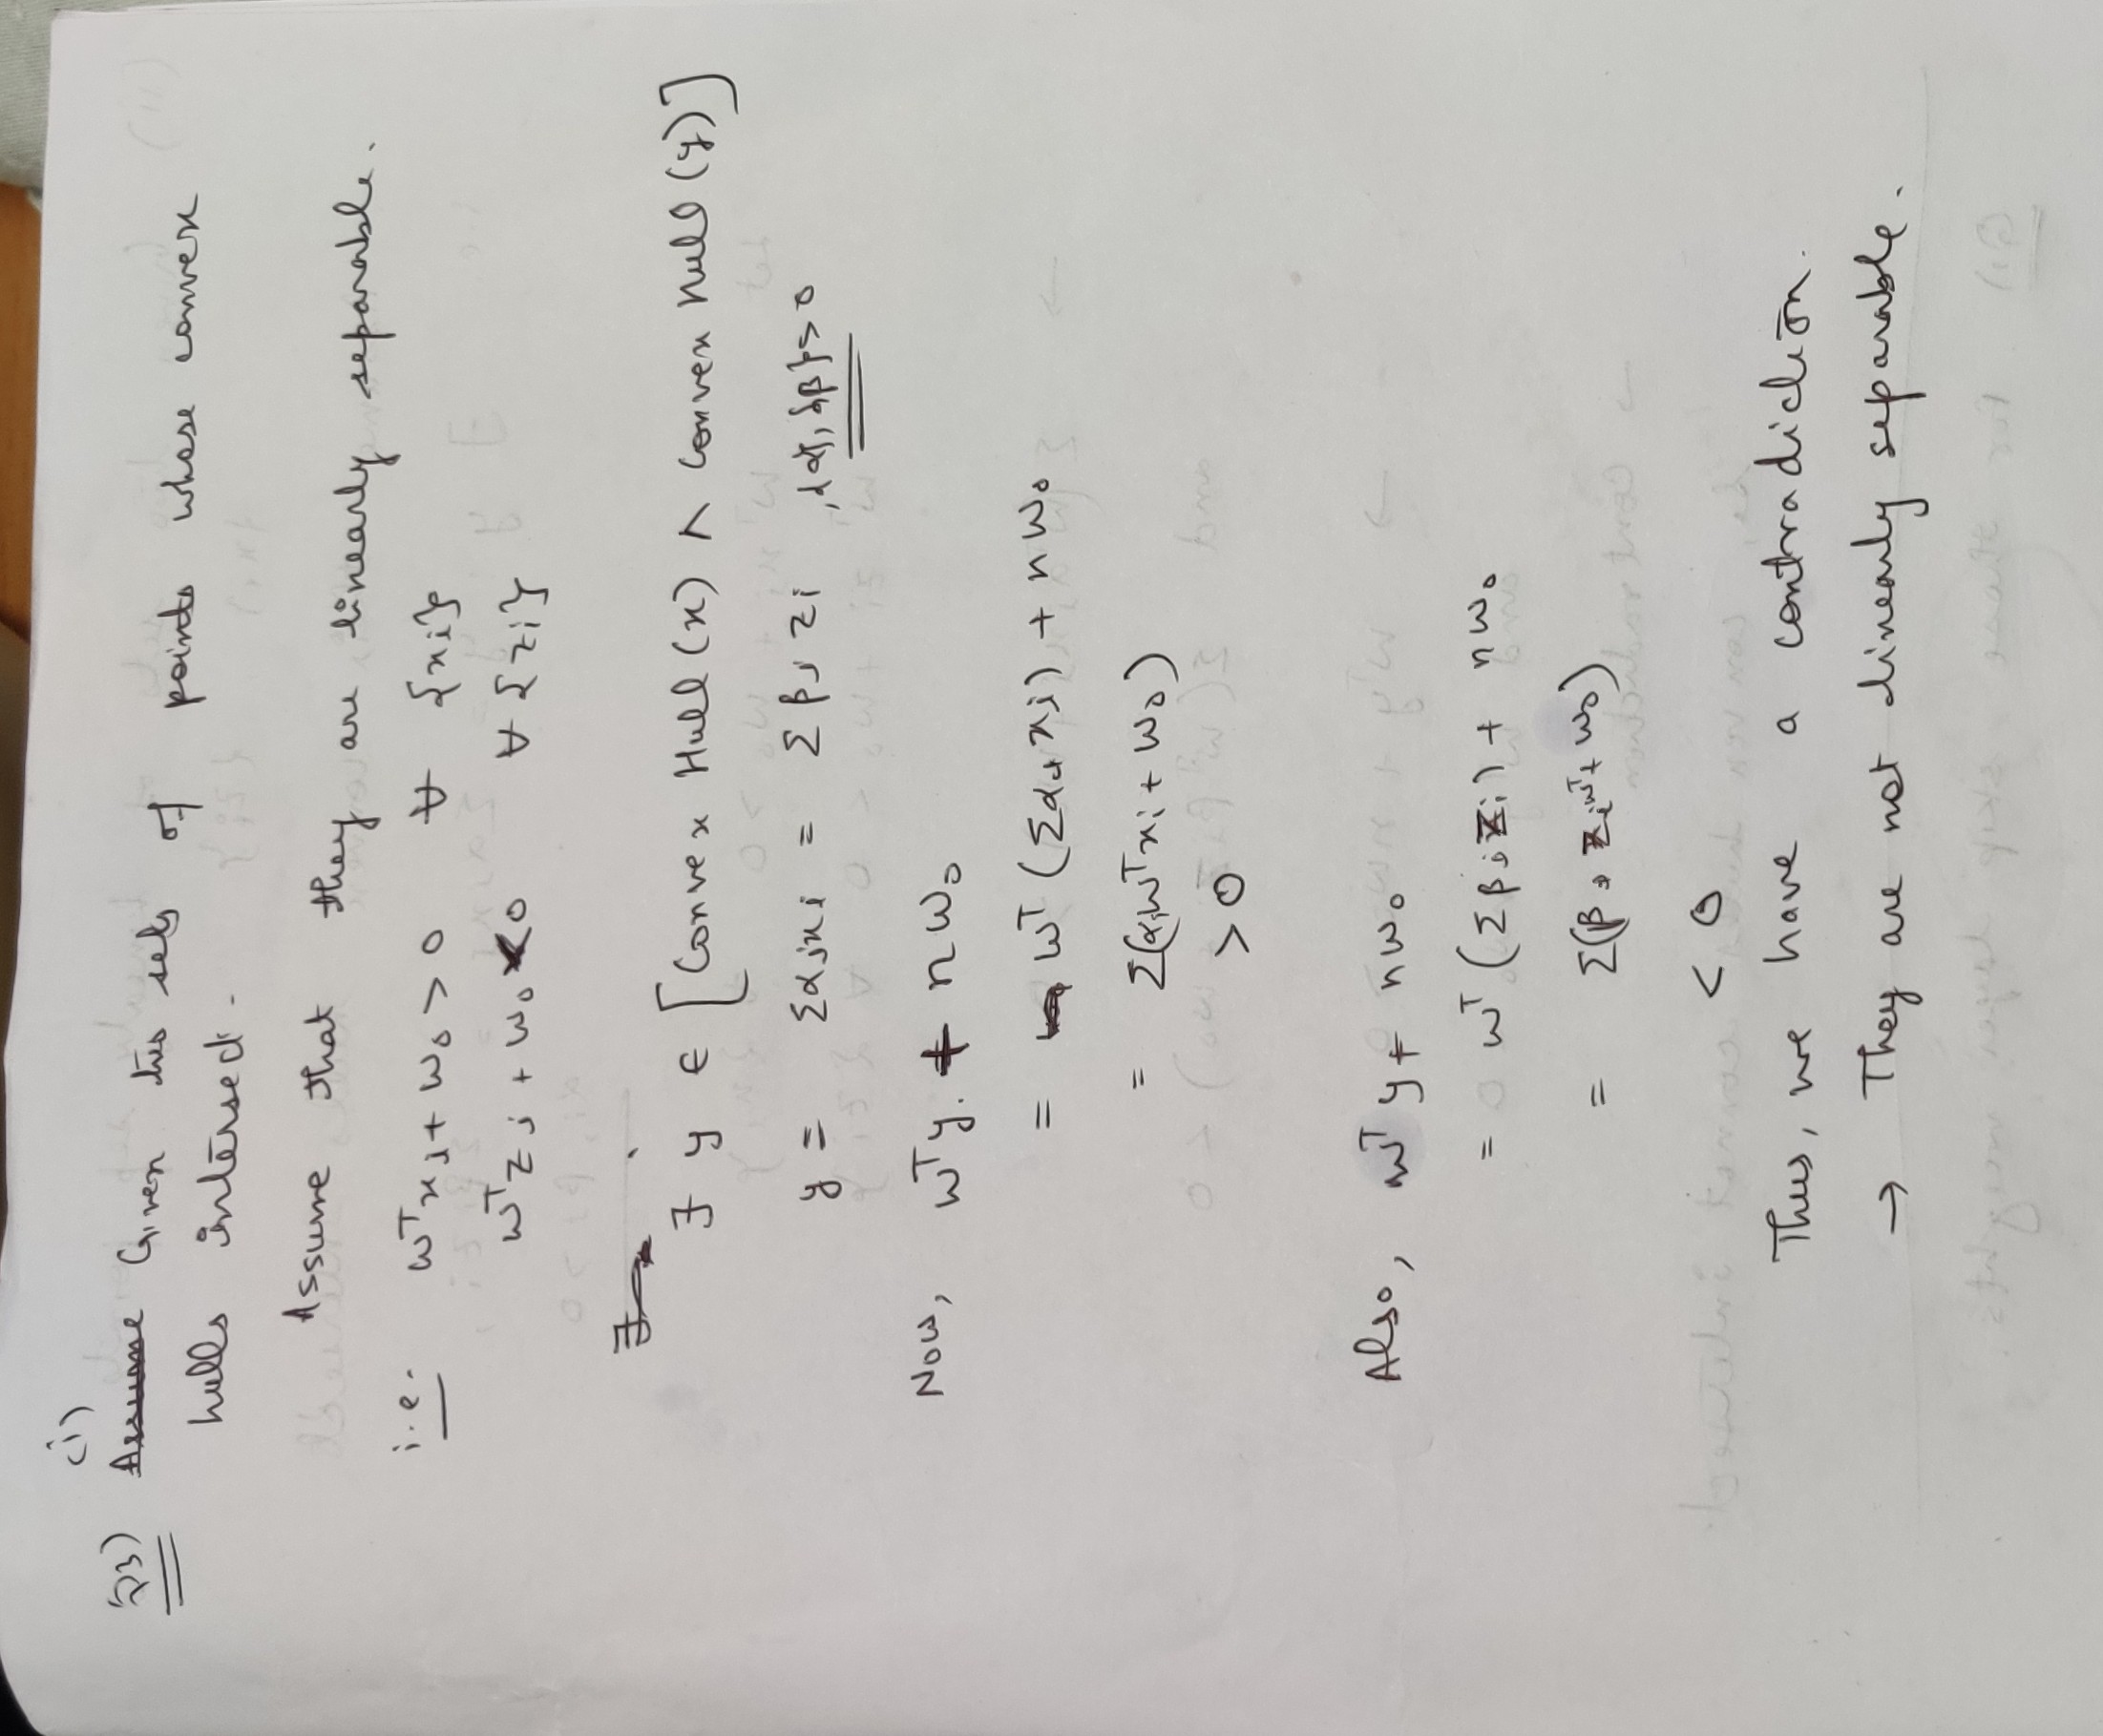 (i)
Q3) Assume Given two sets of points whose convex
hulls intersect.
Assume that they are linearly separable.
i.e. wᵀxᵢ + w₀ > 0 ∀ {xᵢ}
wᵀzᵢ + w₀ < 0 ∀ {zᵢ}
∃
∃ y ∈ [Convex Hull (x) ∧ Convex Hull (y)]
y = Σαᵢxᵢ = Σβᵢzᵢ , {α}, {β} > 0
Now, wᵀy + nw₀
= wᵀ(Σαᵢxᵢ) + nw₀
= Σ(αᵢwᵀxᵢ + w₀)
> 0
Also, wᵀy + nw₀
= wᵀ(Σβᵢzᵢ) + nw₀
= Σ(βᵢzᵢwᵀ + w₀)
< 0
Thus, we have a contradiction.
→ They are not linearly separable.